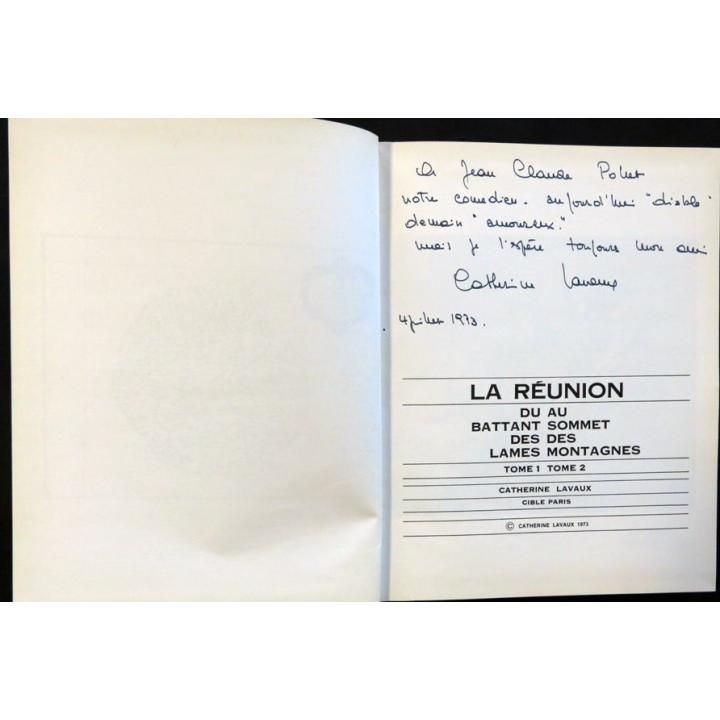 à Jean Claude
notre comedien. aujourd'hui "diable"
demain "amoureux."
mais je l'espère toujours mon ami
Catherine Lavaux
4 juillet 1973.
LA RÉUNION
DU AU
BATTANT SOMMET
DES DES
LAMES MONTAGNES
TOME 1 TOME 2
CATHERINE LAVAUX
CIBLE PARIS
© CATHERINE LAVAUX 1973